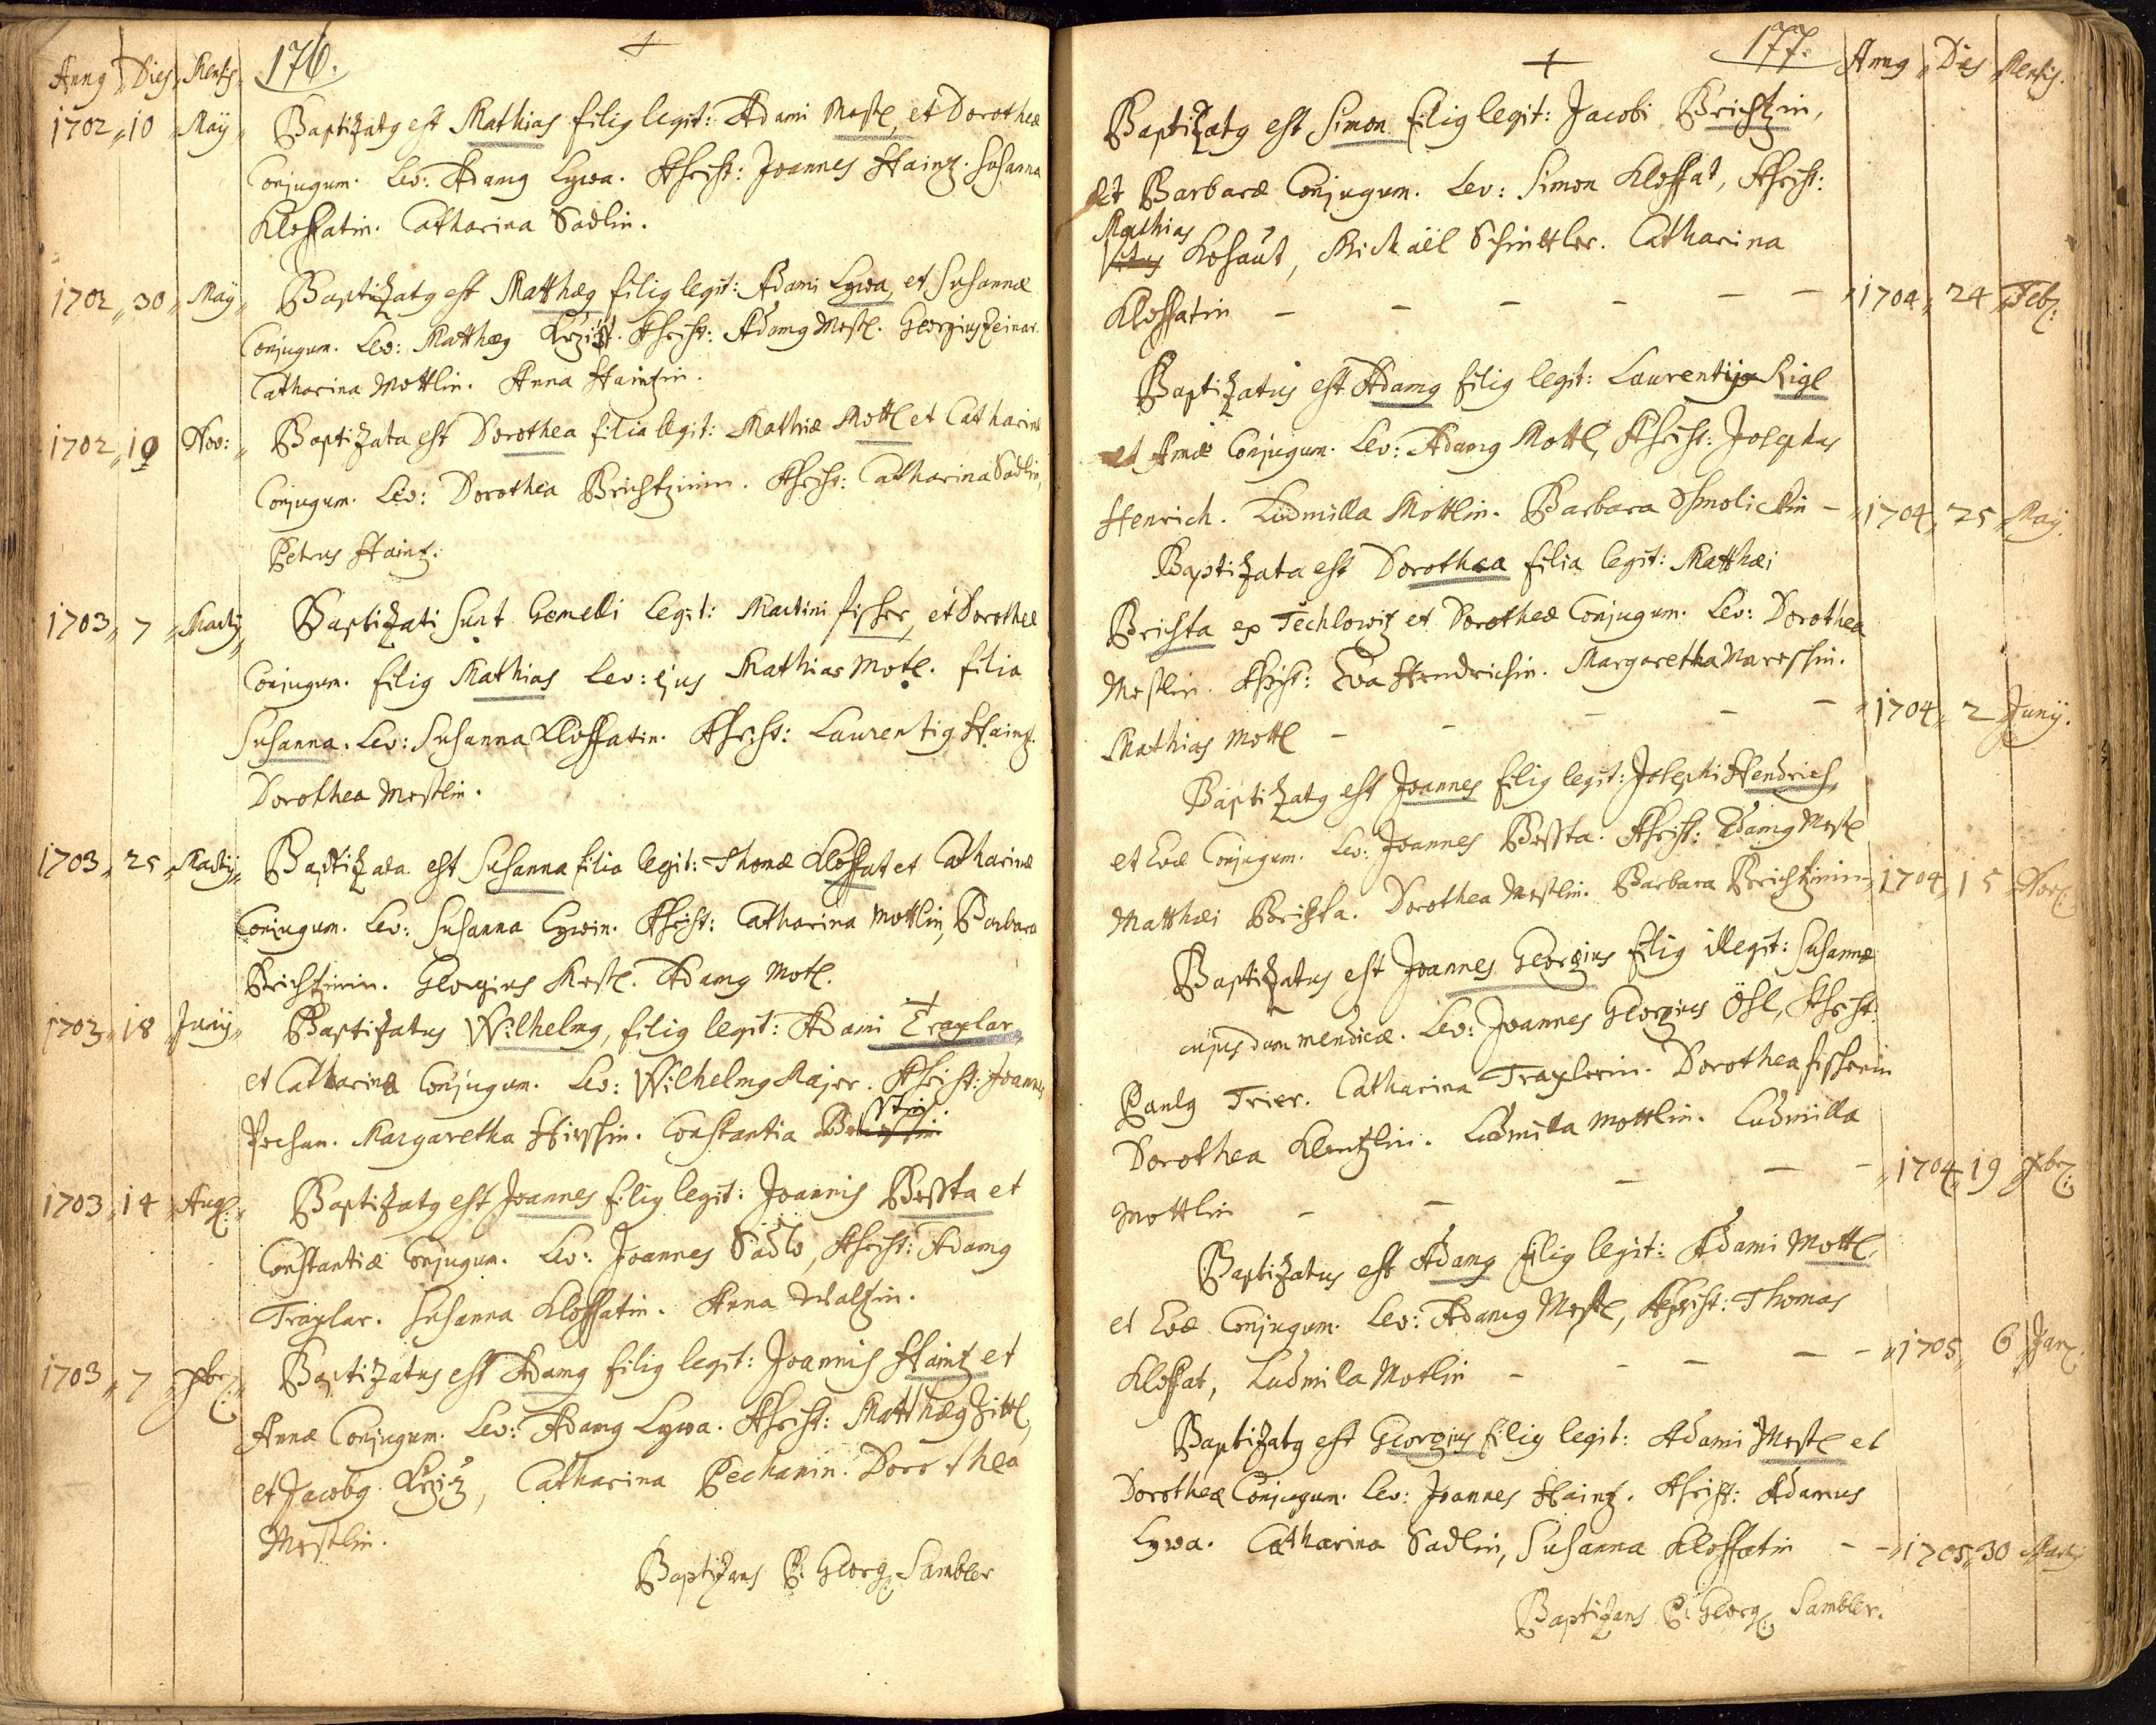 Annq Dies Mensis 176.
1702 10 May Baptizatq est Mathias filiq legit: Adami Mestl, et Dorotheæ
Conjugum. Lev: Adamq Lywa. Assist: Joannes Haintz. Susanna
Kloffatin. Catharina Sadlin.
1702 30 May Baptizatq est Matthæq filiq legit: Adami Lywa, et Susannæ
Conjugum. Lev: Matthæq Assist: Adamq Mestl. Georgius
Catharina Mottlin. Anna Haintzin.
1702 19 Nov: Baptizata est Dorothea filia legit: Mathiæ Mottl et Catharinæ
Conjugum. Lev: Dorothea Brichtzinin. Assist: Catharina Sadlin,
Petrus Haintz.
1703 7 Martij Baptizati sunt Gemelli legit: Martini fisher, et Dorotheæ
Conjugum. filiq Mathias Lev: ejus Mathias Motl. filia
Susanna. Lev: Susanna Kloffatin. Assist: Laurentiq Haintz.
Dorothea Mestlin.
1703 25 Martij Baptizata est Susanna filia legit: Thomæ Kloffat et Catharinæ
Conjugum. Lev: Susanna Lywin. Assist: Catharina Mottlin, Barbara
Brichtzinin. Georgius Mestl. Adamq Motl.
1703 18 Junij Baptizatus Wilhelmq, filiq legit: Adami Traxlar
et Catharina Conjugum. Lev: Wilhelmq Majer. Assist: Joannes
Pechan. Margaretha Hirshin. Constantia
1703 14 Aug: Baptizatq est Joannes filiq legit: Joannis Bessta et
Constantiæ Conjugum. Lev: Joannes Sadlo, Assist: Adamq
Traxlar. Susanna Kloffatin. Anna Waltzin.
1703 7 xbr: Baptizatus est Adamq filiq legit: Joannis Haintz et
Annæ Conjugum. Lev: Adamq Lywa. Assist: Matthæq Zittl,
et Jacobq Krzitz, Catharina Pechanin. Dorothea
Mestlin.
Baptizans P: Georg: Sambler
177. Annq Dies Mensis.
Baptizatq est Simon filiq legit: Jacobi Brichtzin,
et Barbaræ Conjugum. Lev: Simon Kloffat, Assist:
Mathias
Vitus Kohaut, Michaël Schinttler. Catharina
Kloffatin - - - - - - 1704 24 Feb:
Baptizatus est Adamq filiq legit: Laurentij Rigl
et Annæ Conjugum. Lev: Adamq Mottl, Assist: Josephus
Henrich. Ludmilla Mottlin. Barbara - 1704 25 May.
Baptizata est Dorothea filia legit: Matthæi
Brichta ex Techlowitz et Dorotheæ Conjugum. Lev: Dorothea
Mestlin. Assist: Eva Hendrichin. Margaretha Mareshin.
Mathias Mottl - - - - - 1704 2 Junij.
Baptizatq est Joannes filiq legit: Josephi Hendrich,
et Evæ Conjugum. Lev: Joannes Bessta. Assist: Adamq Mestl
Matthæi Brichta. Dorothea Mestlin. Barbara Brichtzinin 1704 15 Nov:
Baptizatus est Joannes Georgius filiq illegit: Susannæ
cujusdam mendicæ. Lev: Joannes Georgius Öhl, Assist:
Paulq Trier. Catharina Traxlerin. Dorothea fisherin
Dorothea Klentzlin. Ludmilla Mottlin. Ludmilla
Mottlin - - - - - 1704 19 xbr:
Baptizatus est Adamq filiq legit: Adami Mottl,
et Evæ Conjugum. Lev: Adamq Mestl, Assist: Thomas
Kloffat, Ludmila Motlin - - - - - 1705 6 Jan:
Baptizatq est Georgius filiq legit: Adami Mestl et
Dorotheæ Conjugum. Lev: Joannes Haintz. Assist: Adamus
Lywa. Catharina Sadlin, Susanna Kloffatin - - 1705 30 Martij
Baptizans P: Georg: Sambler.